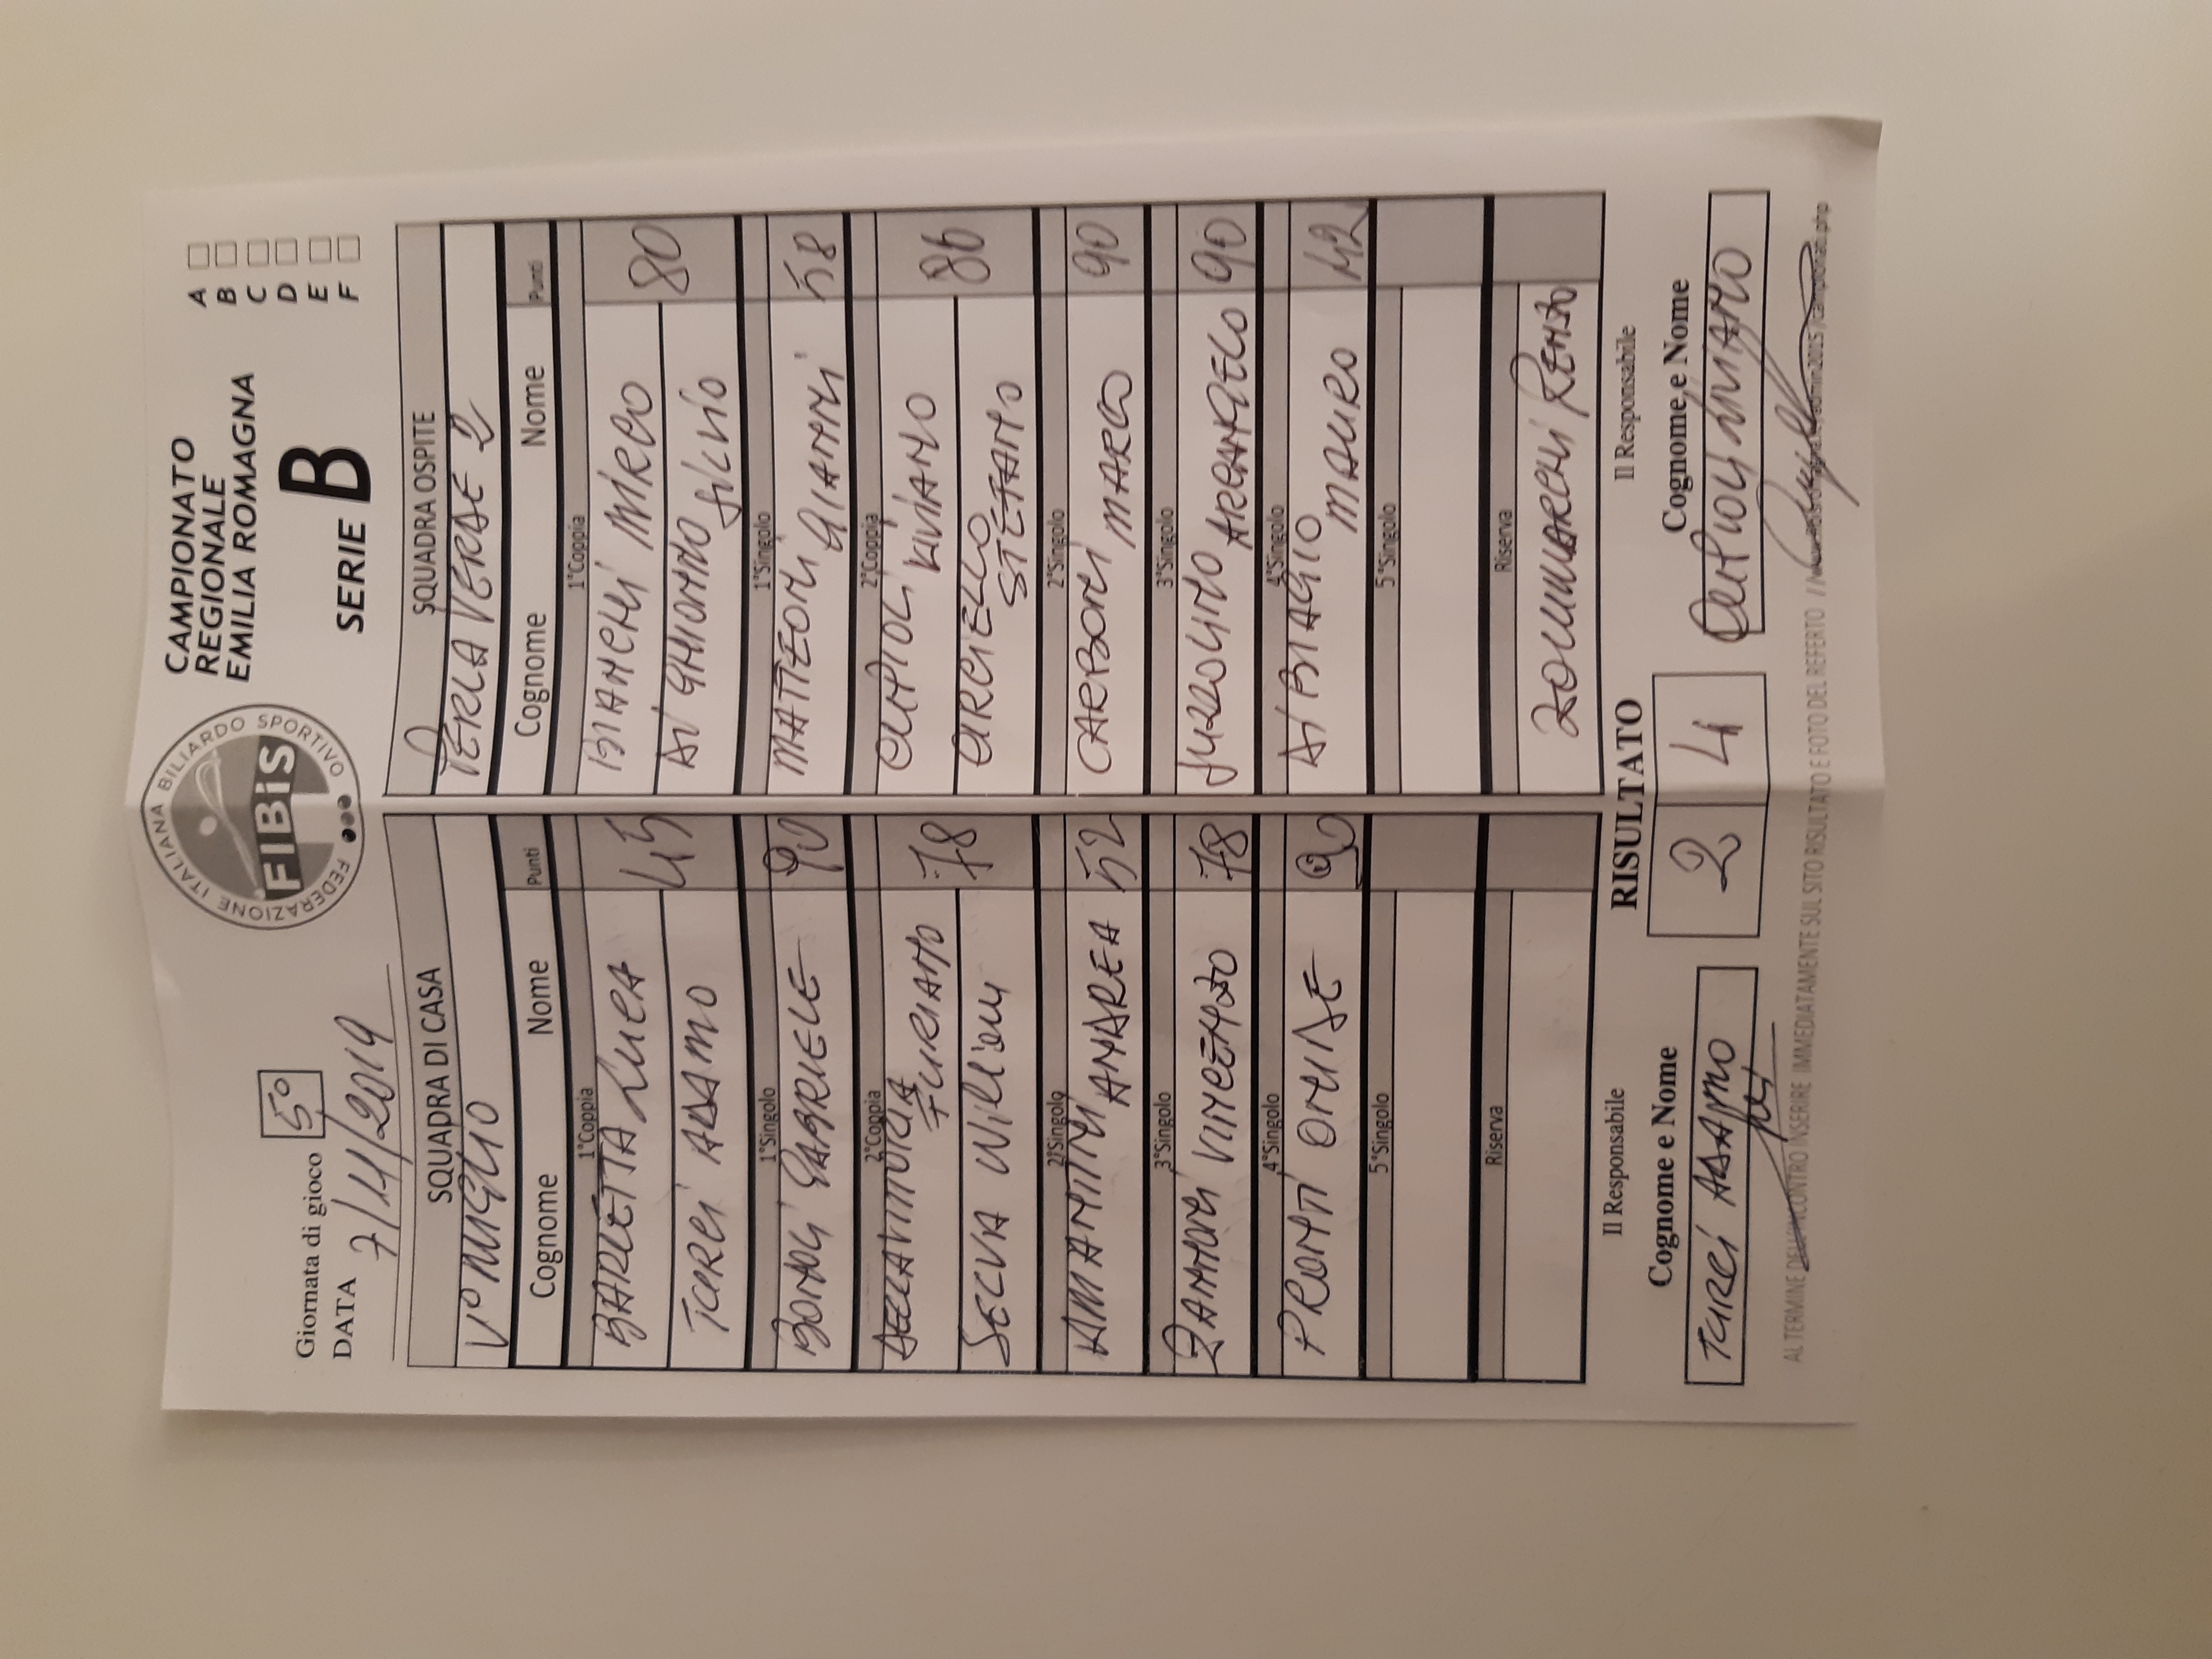 Giornata di gioco 5°
DATA 7/11/2019
FEDERAZIONE ITALIANA BILIARDO SPORTIVO
FIBiS
CAMPIONATO
REGIONALE
EMILIA ROMAGNA
SERIE B
A
B
C
D
E
F
SQUADRA DI CASA
V° MIGLIO
Cognome Nome Punti
1°Coppia
BARLETTA LUCA 45
TURCI ADAMO
1°Singolo
BONOLI GABRIELE 90
2°Coppia
DELLAVITTORIA FURIANO 78
SELVA William
2°Singolo
AMANTINI ANDREA 52
3°Singolo
ZANNONI VINCENZO 78
4°Singolo
PRONTI ONLIDE 90
5°Singolo
Riserva
SQUADRA OSPITE
PERLA VERDE 2
Cognome Nome Punti
1°Coppia
BIANCHI MIRCO 80
DI GHIONNO SILVIO
1°Singolo
MATTEONI GIANNI 58
2°Coppia
CUPIOLI VIVIANO 86
CIRCIELLO STEFANO
2°Singolo
CARBONI MARCO 90
3°Singolo
SUZZOLINO ARCANGELO 90
4°Singolo
DI BIAGIO MAURO 42
5°Singolo
Riserva
RENZO
Il Responsabile
RISULTATO
Il Responsabile
Cognome e Nome
2 4
Cognome e Nome
TURCI ADAMO
AL TERMINE DELL'INCONTRO INSERIRE IMMEDIATAMENTE SUL SITO RISULTATO E FOTO DEL REFERTO